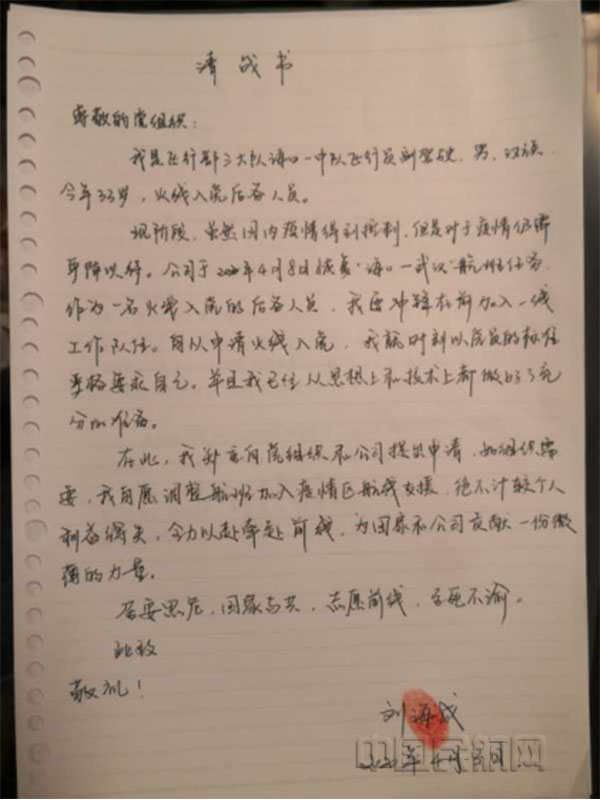 请战书
尊敬的党组织：
我是飞行部三大队海口一中队飞行员刘海成，男，汉族，
今年33岁，火线入党后备人员。
现阶段，虽然国内疫情得到控制，但是对于疫情仍需
严阵以待。公司于2020年4月8日恢复“海口—武汉”航班任务，
作为一名火线入党的后备人员，我要冲锋在前加入一线
工作队伍。自从申请火线入党，我就时刻以党员的标准
严格要求自己。并且我已经从思想上和技术上都做好了充
分的准备。
在此，我郑重向党组织和公司提出申请，如组织需
要，我自愿调整航班加入疫情区航线支援，绝不计较个人
利益得失，全力以赴奔赴前线，为国家和公司贡献一份微
薄的力量。
居安思危，国家与共，志愿前线，至死不渝。
此致
敬礼！
刘海成
2020年4月 日
中国民航网